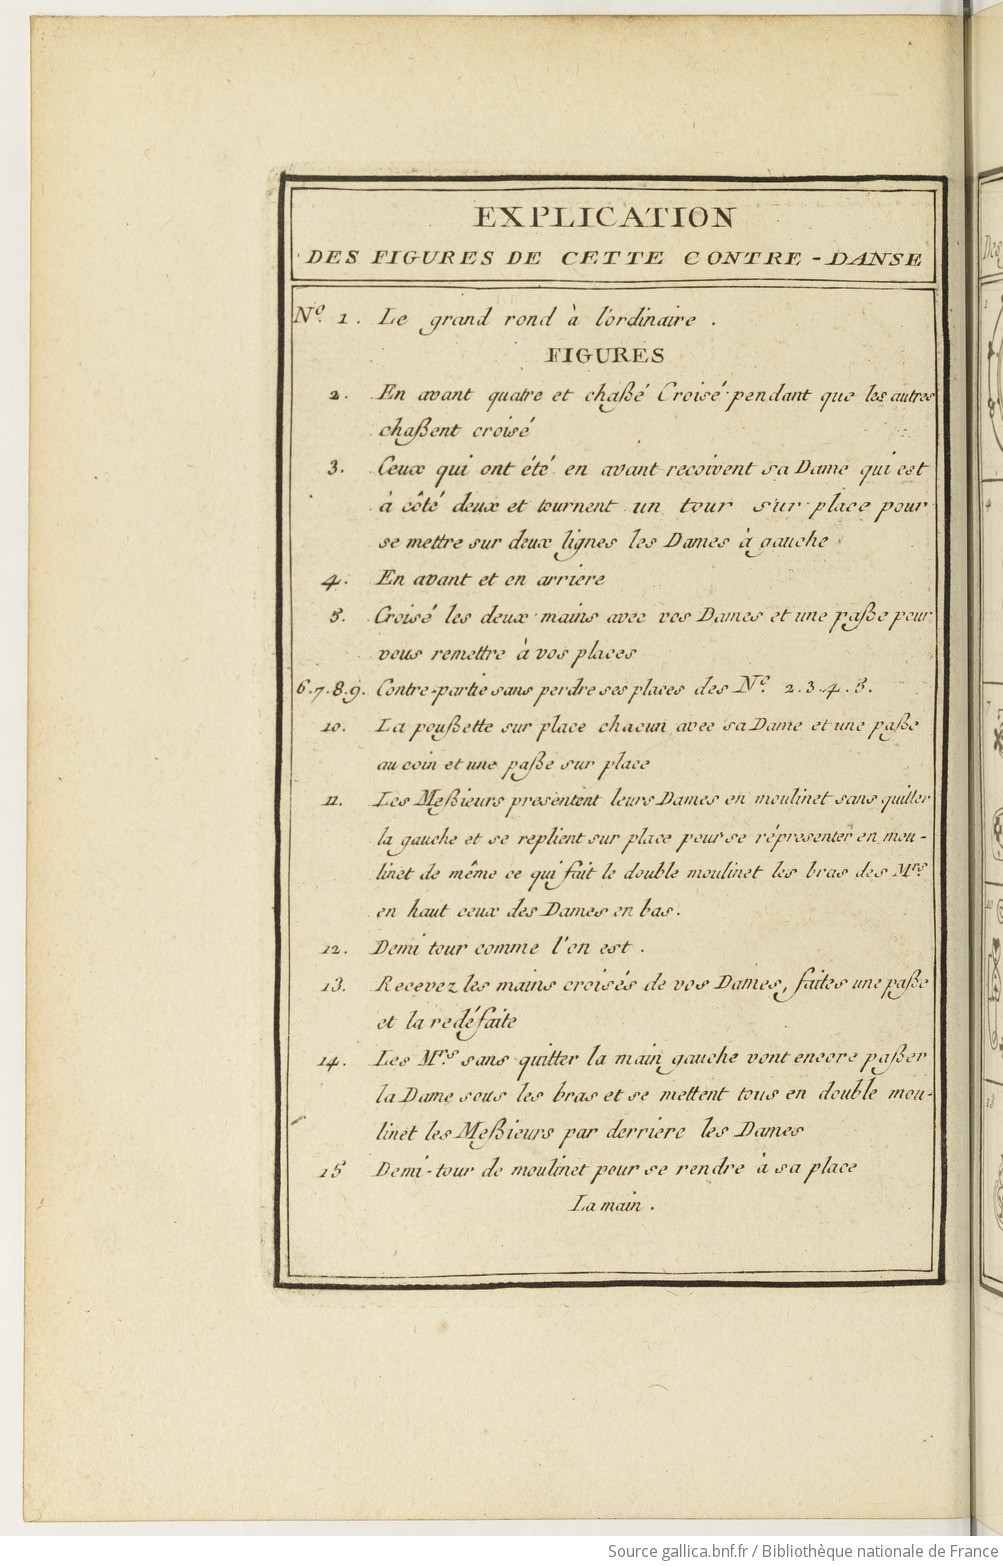 EXPLICATION
DES FIGURES DE CETTE CONTRE-DANSE
Nº. 1. Le grand rond à l'ordinaire.
FIGURES
2. En avant quatre et chaßé Croisé pendant que les autres
chaßent croisé
3. Ceux qui ont été en avant recoivent sa Dame qui est
à côté deux et tournent un tour sur place pour
se mettre sur deux lignes les Dames à gauche
4. En avant et en arriere
5. Croisé les deux mains avec vos Dames et une paße pour
vous remettre à vos places
6.7.8.9. Contre-partie sans perdre ses places des Nº. 2.3.4.5.
10. La poußette sur place chacun avec sa Dame et une paße
au coin et une paße sur place
11. Les Meßieurs presentent leurs Dames en moulinet sans quitter
la gauche et se replient sur place pour se répresenter en mou-
linet de même ce qui fait le double moulinet les bras des Mrs.
en haut ceux des Dames en bas.
12. Demi tour comme l'on est.
13. Recevez les mains croisés de vos Dames, faites une paße
et la redéfaite
14. Les Mrs. sans quitter la main gauche vont encore paßer
la Dame sous les bras et se mettent tous en double mou-
linet les Meßieurs par derriere les Dames
15 Demi-tour de moulinet pour se rendre à sa place
La main.
Source gallica.bnf.fr / Bibliothèque nationale de France